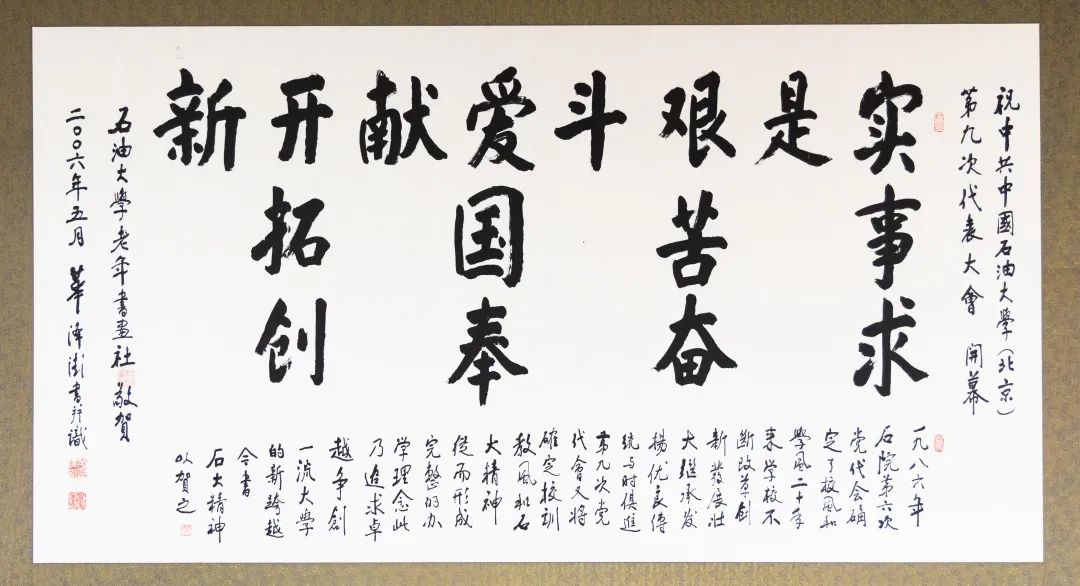 祝中共中國石油大學(北京)
第九次代表大會 開幕
实事求
是
艰苦奋
斗
爱国奉
献
开拓创
新
一九八六年
石院第六次
党代会确
定了校风和
學风二十年
来学校不
断改革创
新發展壮
大继承发
揚优良傳
统与时俱進
第九次党
代會又将
確定校训
教风和石
大精神
從而形成
完整的办
学理念此
乃追求卓
越争创
一流大學
的新跨越
今書
石大精神
以賀之
石油大學老年書画社 敬賀
二〇〇六年五月 華泽澎書并識